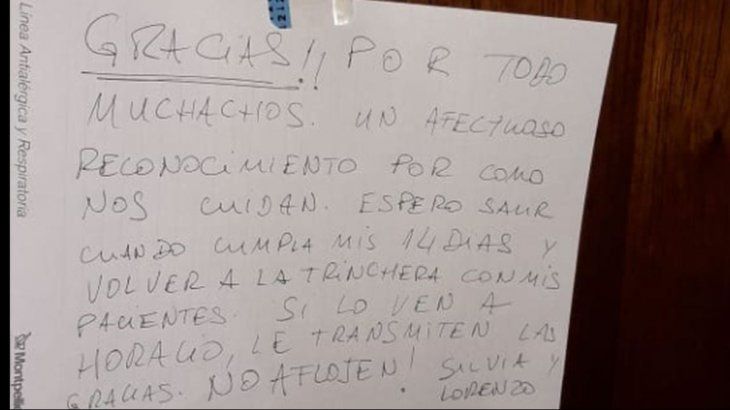 Línea Antialérgica y Respiratoria
Montpelli
GRACIAS!! POR TODO
MUCHACHOS. UN AFECTUOSO
RECONOCIMIENTO POR COMO
NOS CUIDAN. ESPERO SALIR
CUANDO CUMPLA MIS 14 DIAS Y
VOLVER A LA TRINCHERA CON MIS
PACIENTES. SI LO VEN A
HORACIO, LE TRANSMITEN LAS
GRACIAS. NO AFLOJEN! SILVIA Y
LORENZO